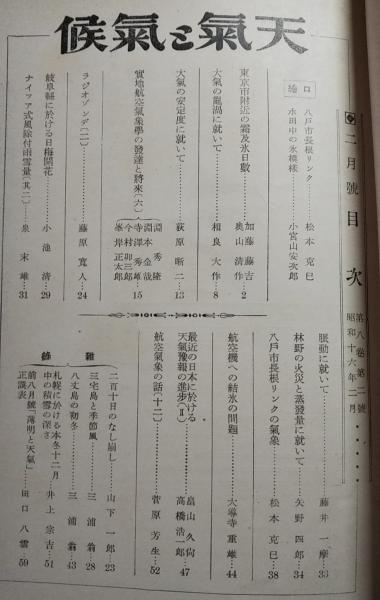 天氣と氣候
第八卷第二號
昭和十六年二月
二月號 目次
口繪
八戸市長根リンク……松本克巳
水田中の氷模樣……小宮山安次郎
東京市附近の霜及氷日數……加藤藤吉 奥山清作…2
大氣の亂渦に就いて……相良大作…8
大氣の安定度に就いて……荻原晰二…13
實地航空氣象學の發達と將來(六)……淵秀隆 淵本金哉 寺澤秀雄 今村卯三郎 峯岸正太郎…15
ラジオゾンデ(二)……藤原寛人…24
岐阜縣に於ける白梅開花……小池清…29
ナイファ式風除付雨雪量(其二)……泉末雄…31
脈動に就いて……藤井一摩…33
林野の火災と蒸發量に就いて……矢野四郎…34
八戸市長根リンクの氣象……松本克巳…38
航空機への結氷の問題……大導寺重雄…44
最近の日本に於ける天氣豫報の進歩(Ⅱ)……畠山久尚 高橋浩一郎…47
航空氣象の話(十二)……菅原芳生…52
雜錄
二百十日のなし崩し……山下一郎…23
三宅島と季節風……三浦翁…28
八丈島の初冬……三浦翁…43
札幌に於ける本冬十二月中の積雪の深さ……井上宗吉…51
前八月號「薄明と天氣」正誤表……田口八雲…59